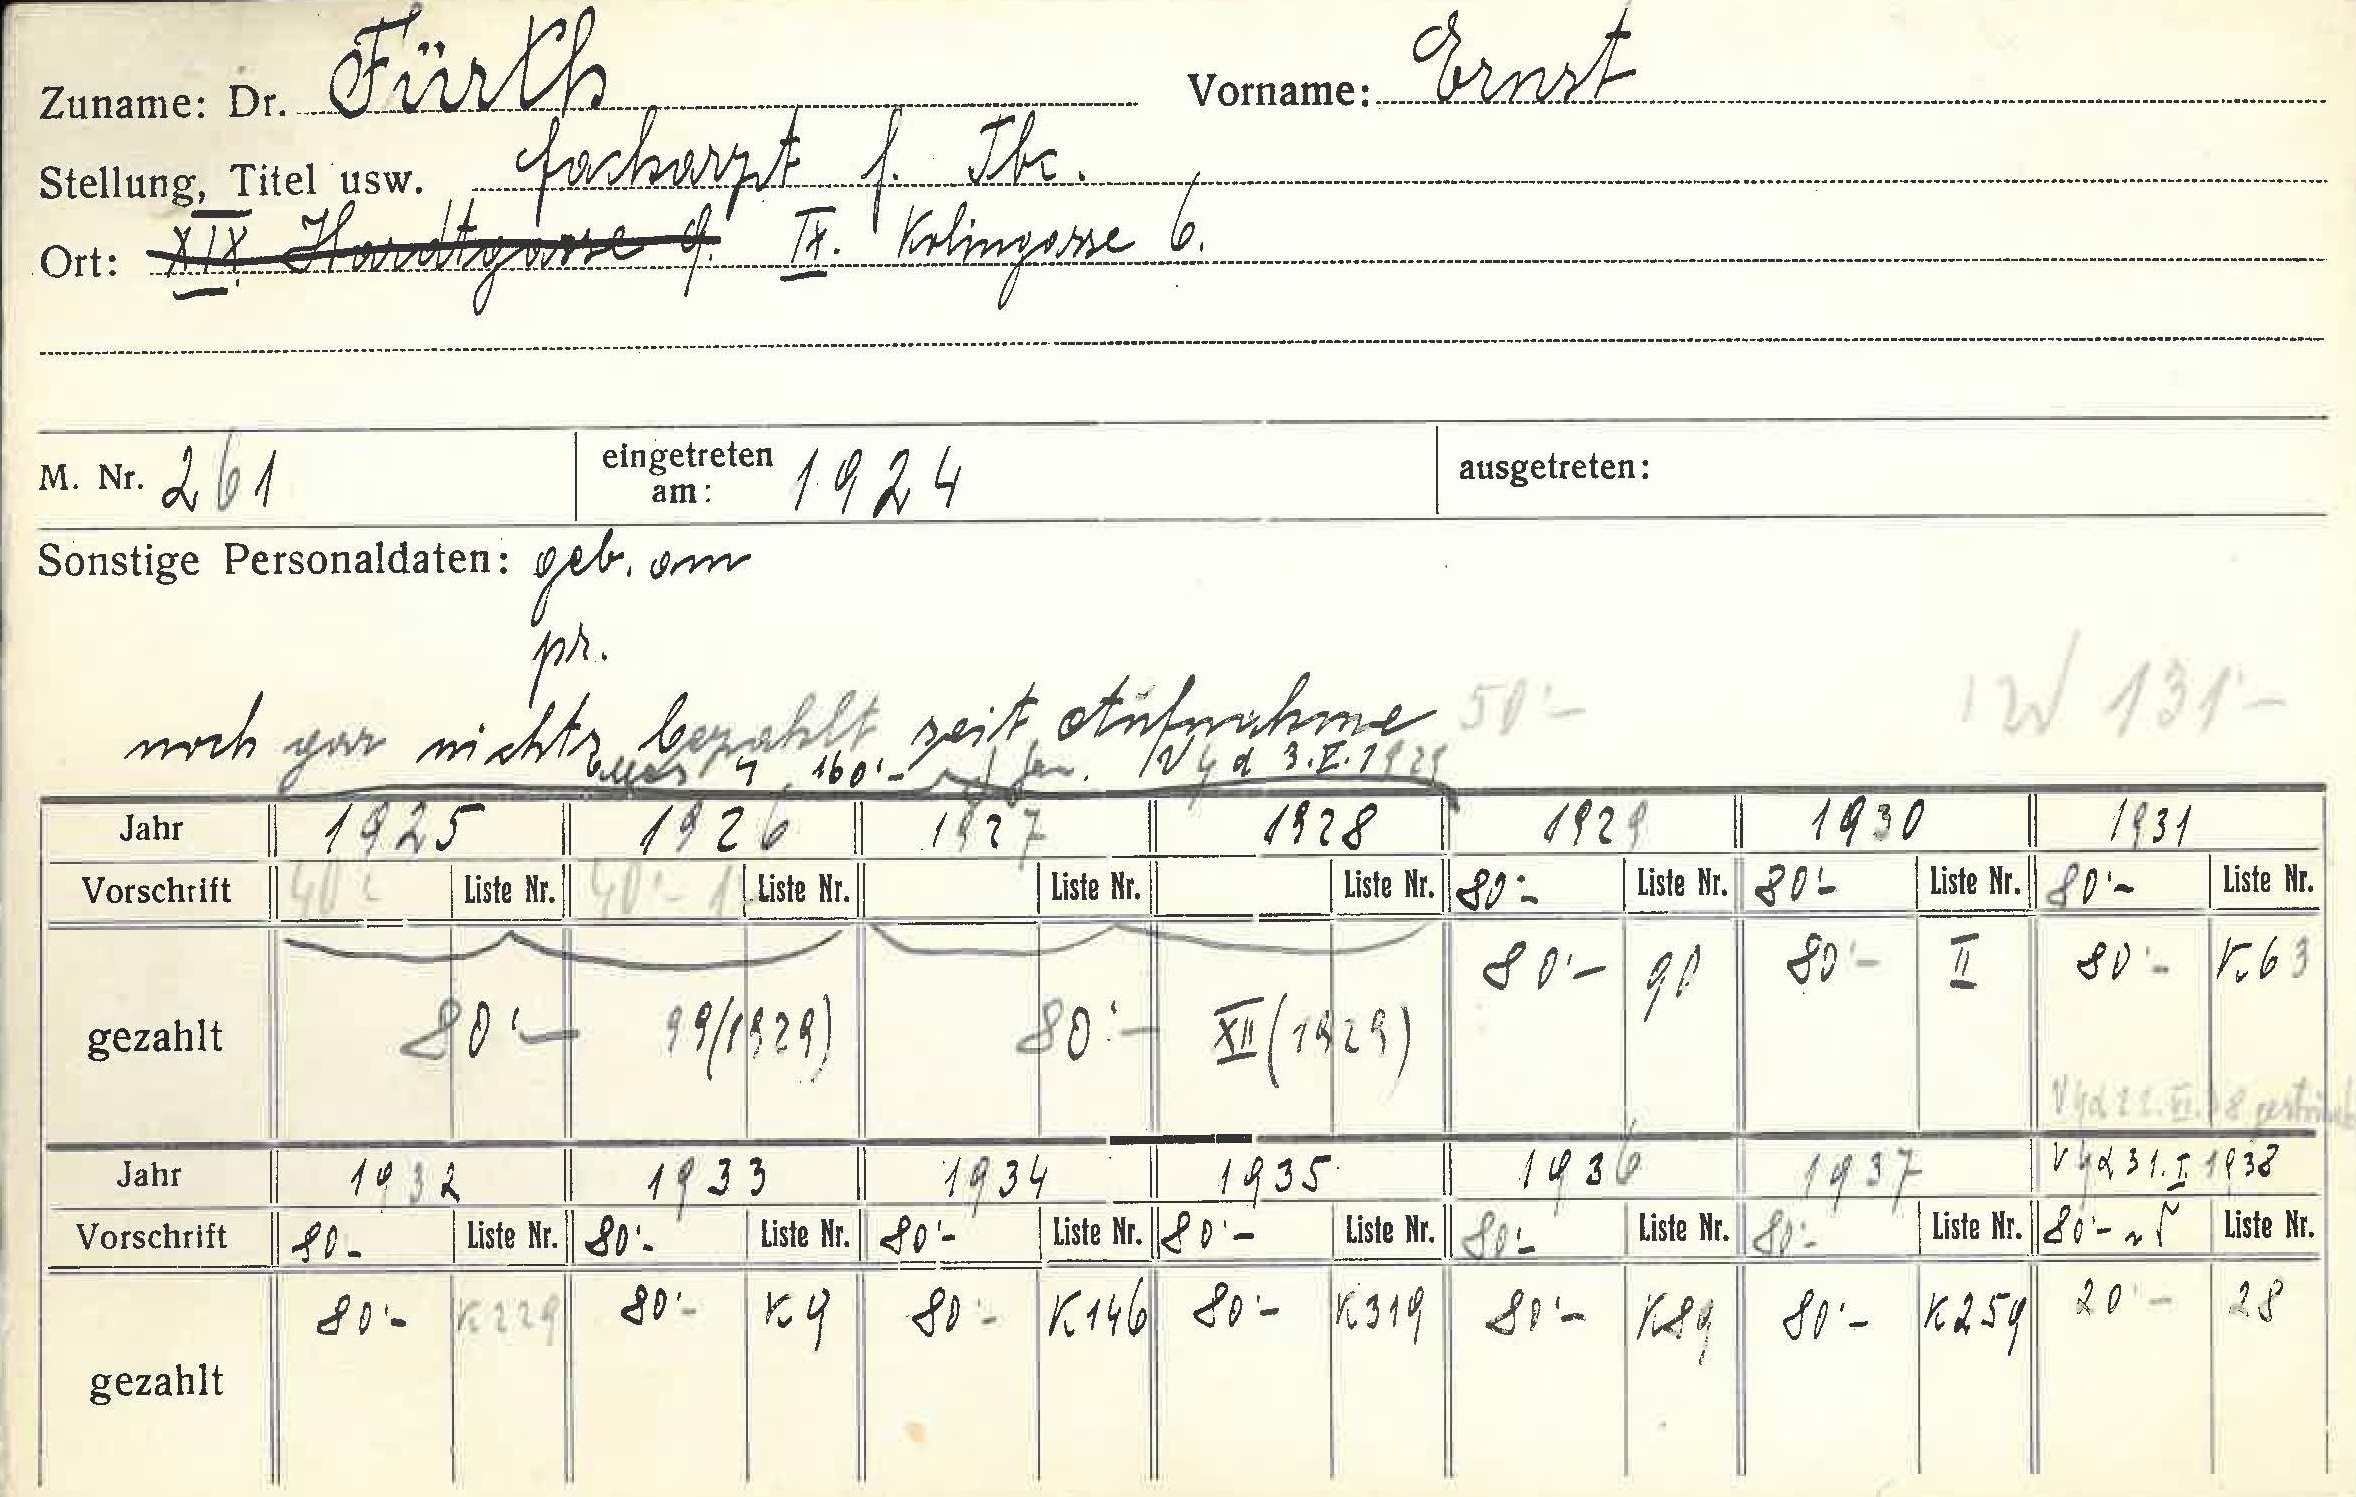 Zuname: Dr. Fürth Vorname: Ernst
Stellung, Titel usw. Facharzt f. Tbc.
Ort: XIX. Hardtgasse 9. IX. Kolingasse 6.
M. Nr. 261 eingetreten am: 1924 ausgetreten:
Sonstige Personaldaten: geb. am
pr.
noch gar nichts bezahlt seit Aufnahme 50'- 131'-
160'- 3.V.1929
Jahr 1925 1926 1927 1928 1929 1930 1931
Vorschrift 40'- Liste Nr. 40'- Liste Nr. Liste Nr. Liste Nr. 80'- Liste Nr. 80'- Liste Nr. 80'- Liste Nr.
gezahlt 80'- 99/1929) 80'- XII (1929) 80'- 90 80'- II 80'- K.63
Vgd 22.VI.38 gestrichen
Jahr 1932 1933 1934 1935 1936 1937 Vgd 31.I.1938
Vorschrift 80- Liste Nr. 80'- Liste Nr. 80'- Liste Nr. 80'- Liste Nr. 80'- Liste Nr. 80'- Liste Nr. 80'- Liste Nr.
gezahlt 80'- K229 80'- K9 80'- K146 80'- K319 80'- K89 80'- K259 20'- 28